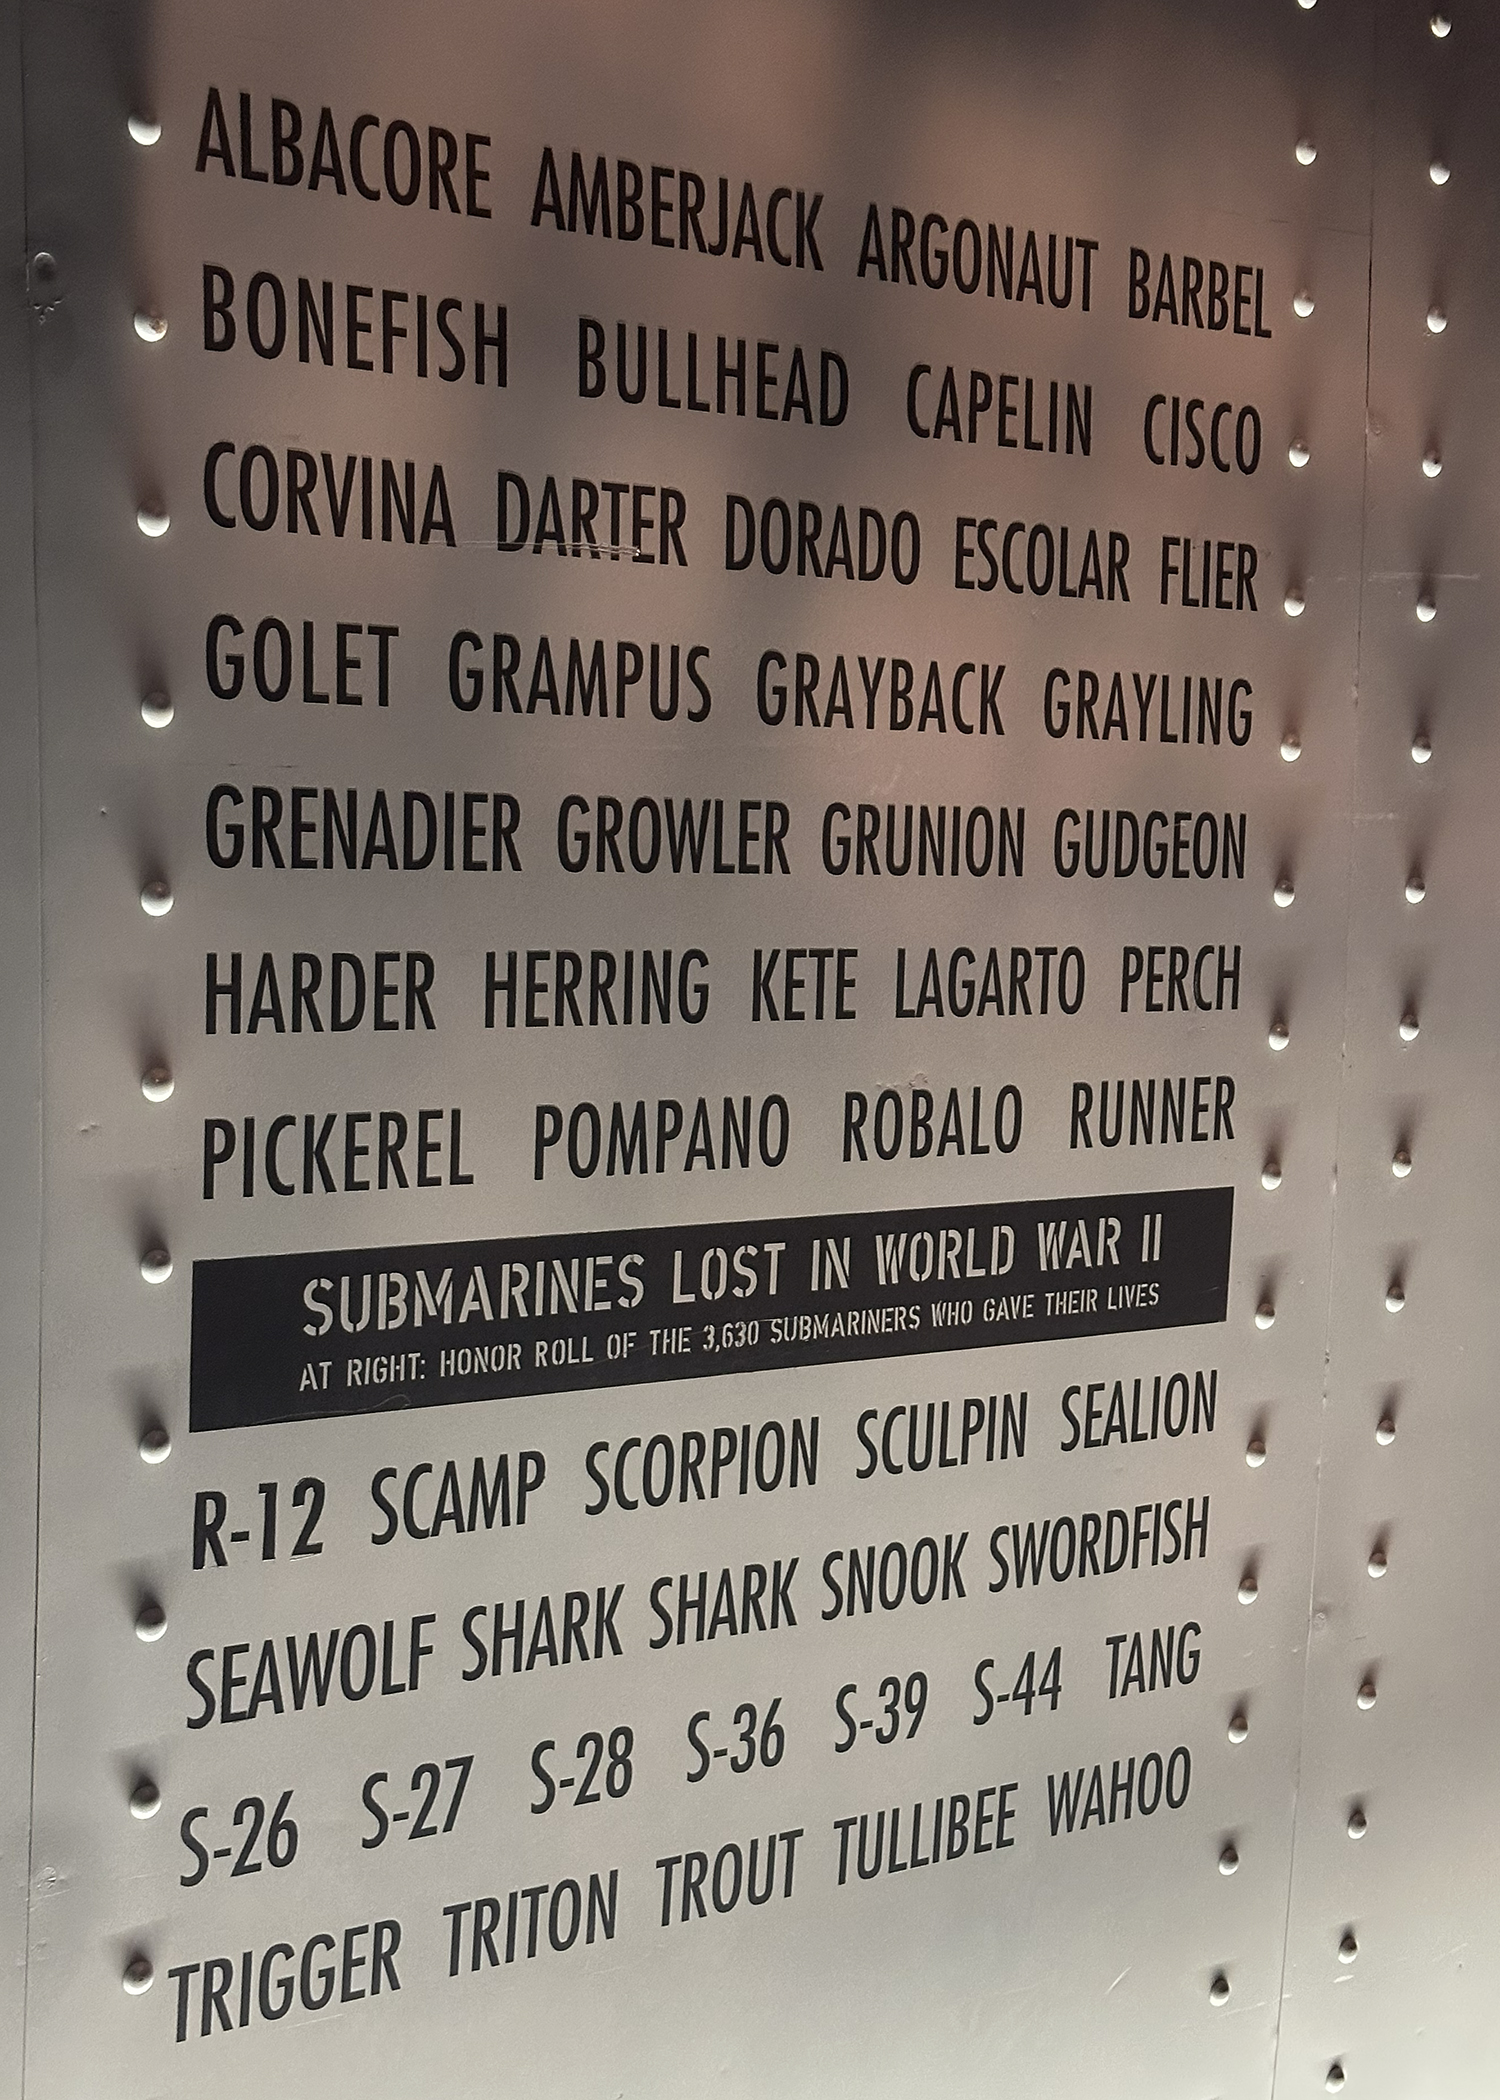 ALBACORE AMBERJACK ARGONAUT BARBEL
BONEFISH BULLHEAD CAPELIN CISCO
CORVINA DARTER DORADO ESCOLAR FLIER
GOLET GRAMPUS GRAYBACK GRAYLING
GRENADIER GROWLER GRUNION GUDGEON
HARDER HERRING KETE LAGARTO PERCH
PICKEREL POMPANO ROBALO RUNNER
SUBMARINES LOST IN WORLD WAR II
AT RIGHT: HONOR ROLL OF THE 3,630 SUBMARINERS WHO GAVE THEIR LIVES
R-12 SCAMP SCORPION SCULPIN SEALION
SEAWOLF SHARK SHARK SNOOK SWORDFISH
S-26 S-27 S-28 S-36 S-39 S-44 TANG
TRIGGER TRITON TROUT TULLIBEE WAHOO